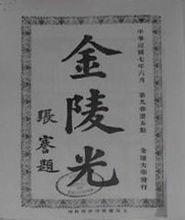 中華民國七年六月
第九卷第五期
金陵大學發行
金陵光
張謇題